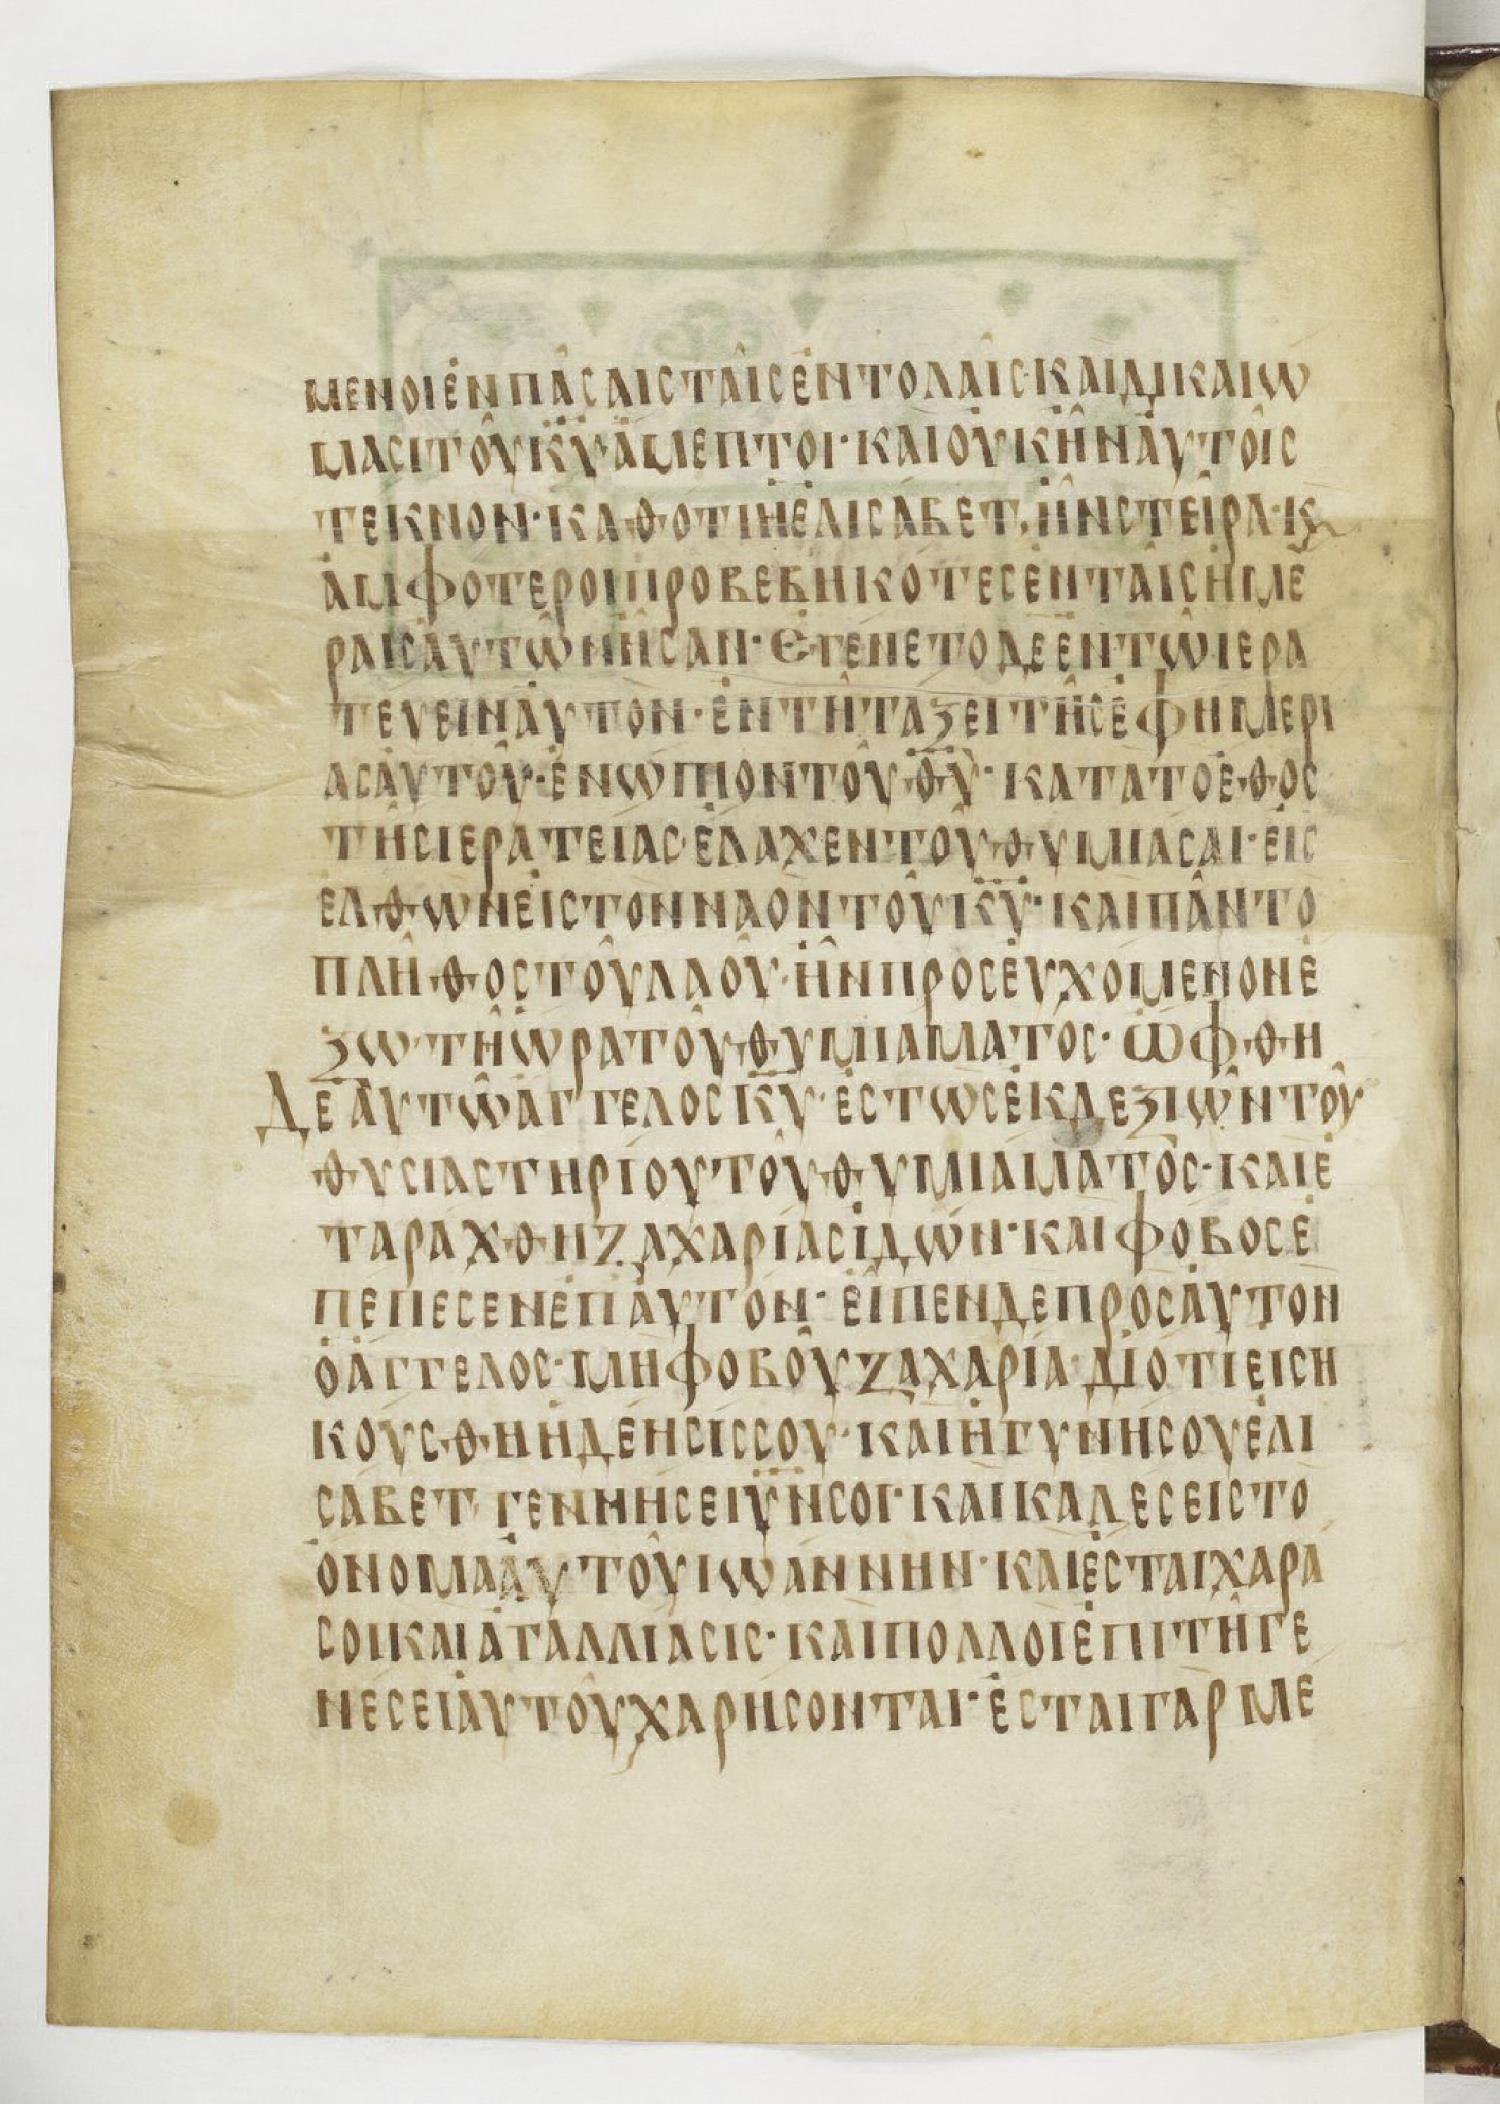 ΜΕΝΟΙΕΝΠΑ͂ϹΑΙϹΤΑΙ͂ϹΕΝΤΟΛΑΙ͂Ϲ·ΚΑΙΔΙΚΑΙΩ
ΜΑϹΙΤΟΥ͂Κ̅Υ̅ΑΜΕΠΤΟΙ·ΚΑΙΟΥΚΗ͂ΝΑΥΤΟΙ͂Ϲ
ΤΕΚΝΟΝ·ΚΑΘΟΤΙΗΕΛΙϹΑΒΕΤ,ΗΝϹΤΕΙ͂ΡΑ·Κ
ΑΜΦΟΤΕΡΟΙΠΡΟΒΕΒΗΚΟΤΕϹΕΝΤΑΙ͂ϹΗΜΕ
ΡΑΙϹΑΥΤΩ͂ΝΗϹΑΝ·ΕΓΕΝΕΤΟΔΕΕΝΤΩ͂ΙΕΡΑ
ΤΕΥΕΙΝΑΥΤΟΝ·ΕΝΤΗ͂ΤΑΞΕΙΤΗ͂ϹΕΦΗΜΕΡΙ
ΑϹΑΥΤΟΥ͂·ΕΝΩΠΙΟΝΤΟΥ͂Θ̅Υ̅·ΚΑΤΑΤΟΕΘΟϹ
ΤΗ͂ϹΙΕΡΑΤΕΙΑϹ·ΕΛΑΧΕΝΤΟΥ͂ΘΥΜΙΑϹΑΙ·ΕΙϹ
ΕΛΘΩΝΕΙϹΤΟΝΝΑΟΝΤΟΥ͂Κ̅Υ̅·ΚΑΙΠΑ͂ΝΤΟ
ΠΛΗ͂ΘΟϹΤΟΥ͂ΛΑΟΥ͂·ΗΝΠΡΟϹΕΥΧΟΜΕΝΟΝΕ
ΞΩ·ΤΗ͂ΩΡΑΤΟΥ͂ΘΥΜΙΑΜΑΤΟϹ·ΩΦΘΗ
ΔΕΑΥΤΩ͂ΑΓΓΕΛΟϹΚ̅Υ̅·ΕϹΤΩϹΕΚΔΕΞΙΩ͂ΝΤΟΥ͂
ΘΥϹΙΑϹΤΗΡΙΟΥΤΟΥ͂ΘΥΜΙΑΜΑΤΟϹ·ΚΑΙΕ
ΤΑΡΑΧΘΗΖΑΧΑΡΙΑϹΙΔΩΝ·ΚΑΙΦΟΒΟϹΕ
ΠΕΠΕϹΕΝΕΠΑΥΤΟΝ·ΕΙ͂ΠΕΝΔΕΠΡΟϹΑΥΤΟΝ
ΟΑΓΓΕΛΟϹ·ΜΗΦΟΒΟΥ͂ΖΑΧΑΡΙΑ·ΔΙΟΤΙΕΙϹΗ
ΚΟΥϹΘΗΗΔΕΗϹΙϹϹΟΥ·ΚΑΙΗΓΥΝΗϹΟΥΕΛΙ
ϹΑΒΕΤ·ΓΕΝΝΗϹΕΙΥ̅Ν̅ϹΟΙ·ΚΑΙΚΑΛΕϹΕΙϹΤΟ
ΟΝΟΜΑΑΥΤΟΥ͂ΙΩΑΝΝΗΝ·ΚΑΙΕϹΤΑΙΧΑΡΑ
ϹΟΙΚΑΙΑΓΑΛΛΙΑϹΙϹ·ΚΑΙΠΟΛΛΟΙΕΠΙΤΗ͂ΓΕ
ΝΕϹΕΙΑΥΤΟΥ͂ΧΑΡΗϹΟΝΤΑΙ·ΕϹΤΑΙΓΑΡΜΕ